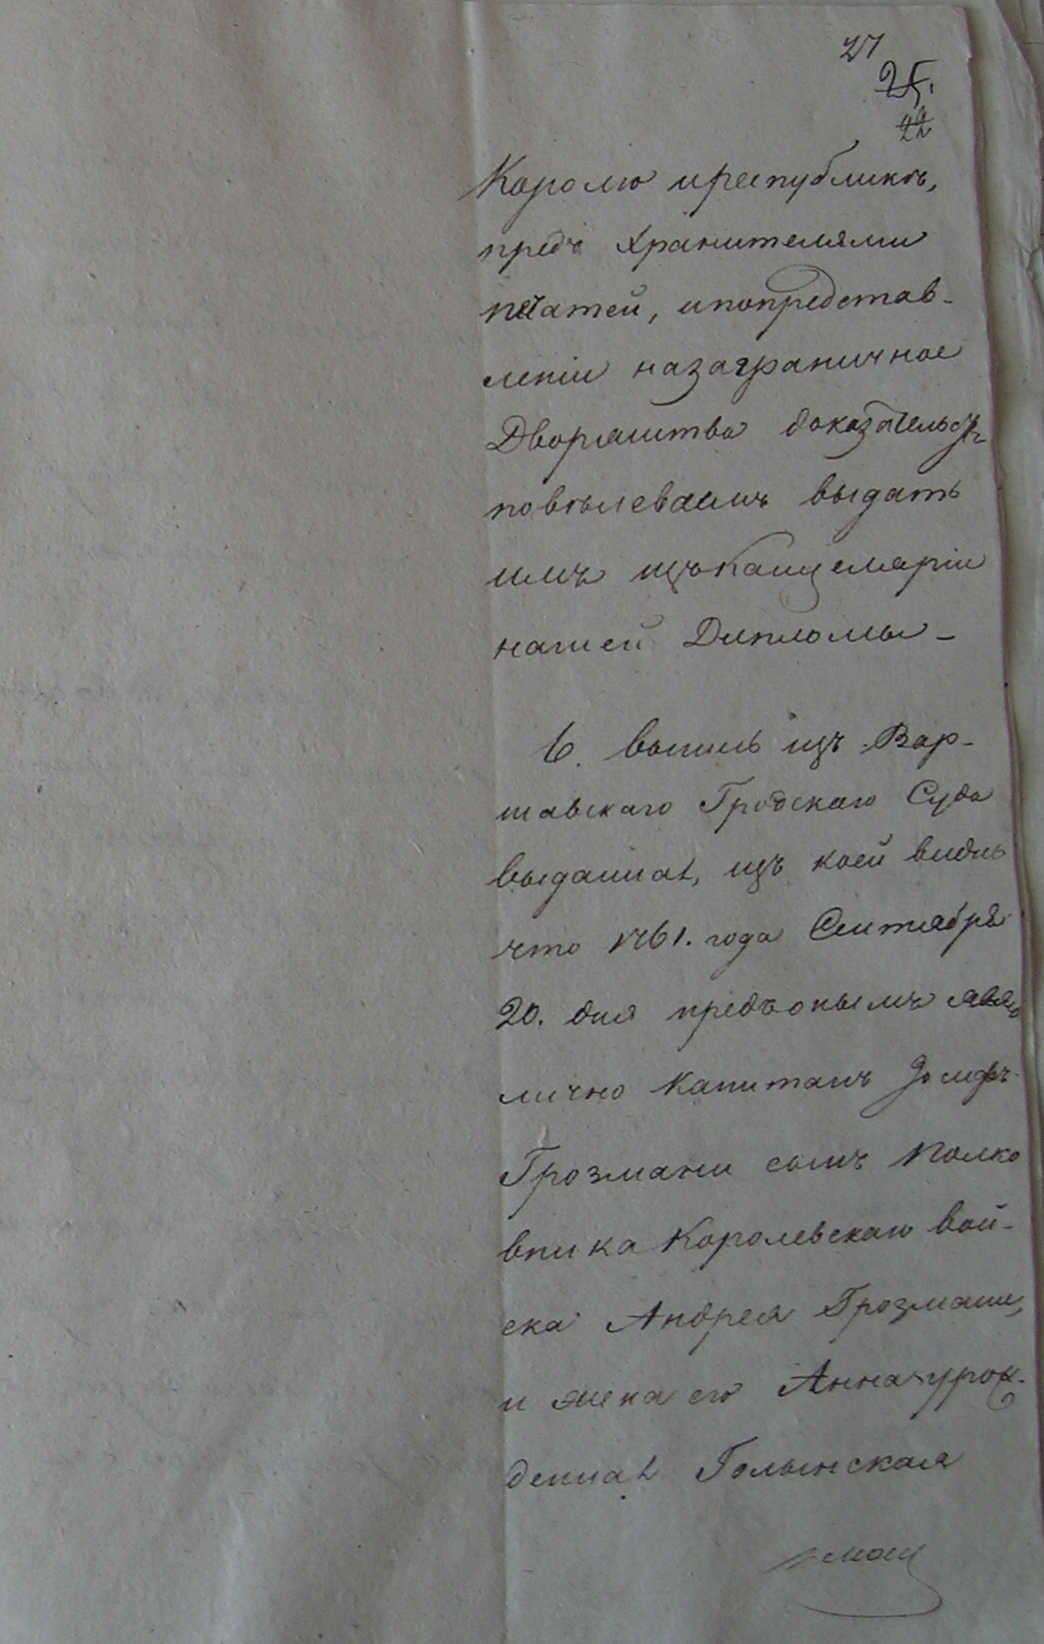 27
25.
22
Королю и республикѣ,
предъ хранителями
печатей, и по представ-
леніи на заграничное
Дворянство доказательствъ
повѣлеваемъ выдать
имъ изъ Канцеляріи
нашей Дипломы -
6. выпись изъ Вар-
шавскаго Гродскаго Суда
выданная, изъ коей видно
что 1761. года Сентября
20. дня предъ онымъ явясь
лично Капитанъ
Грозмани сынъ Полко
вника Королевскаго вой-
ска Андрея Грозмани,
и жена его Анна урож-
денная Голынская